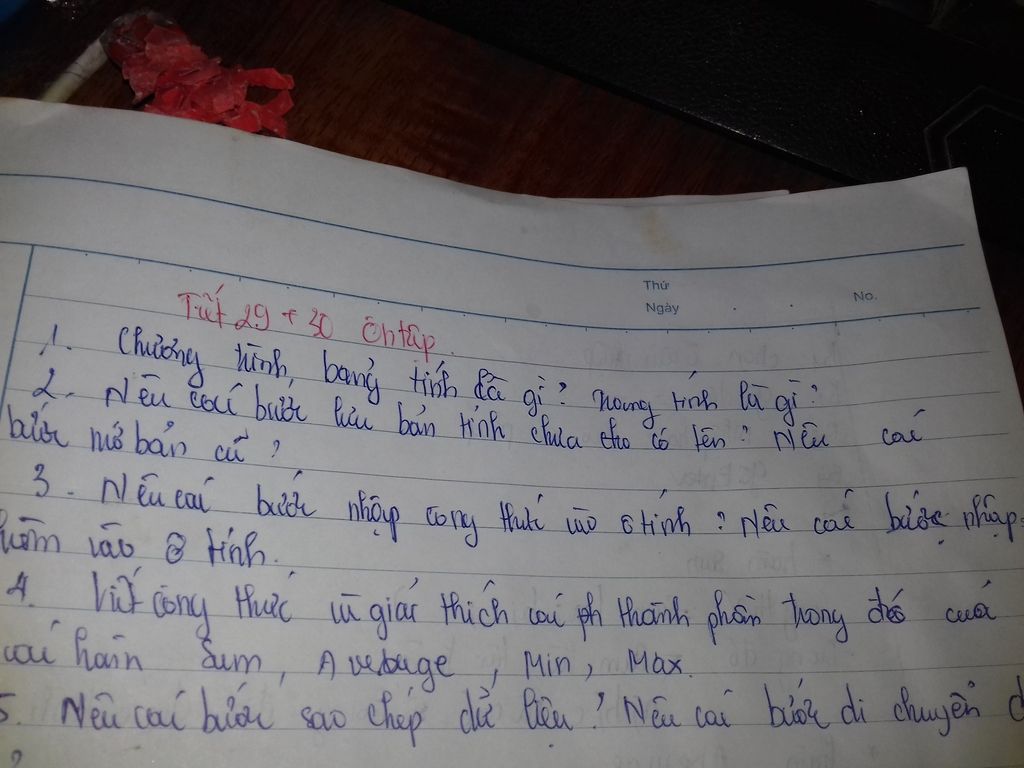 Thứ
Ngày
No.
Tiết 29 + 30 Ôn tập.
1. Chương trình, bảng tính là gì? Trang tính là gì?
2. Nêu các bước lưu bản tính chưa có tên? Nêu các
bước mở bản cũ?
3. Nêu các bước nhập công thức vào ô tính? Nêu các bước nhập
hàm vào ô tính.
4. Viết công thức và giải thích các thành phần trong đó cuả
các hàm Sum, Average, Min, Max.
5. Nêu các bước sao chép dữ liệu? Nêu các bước di chuyển d
?